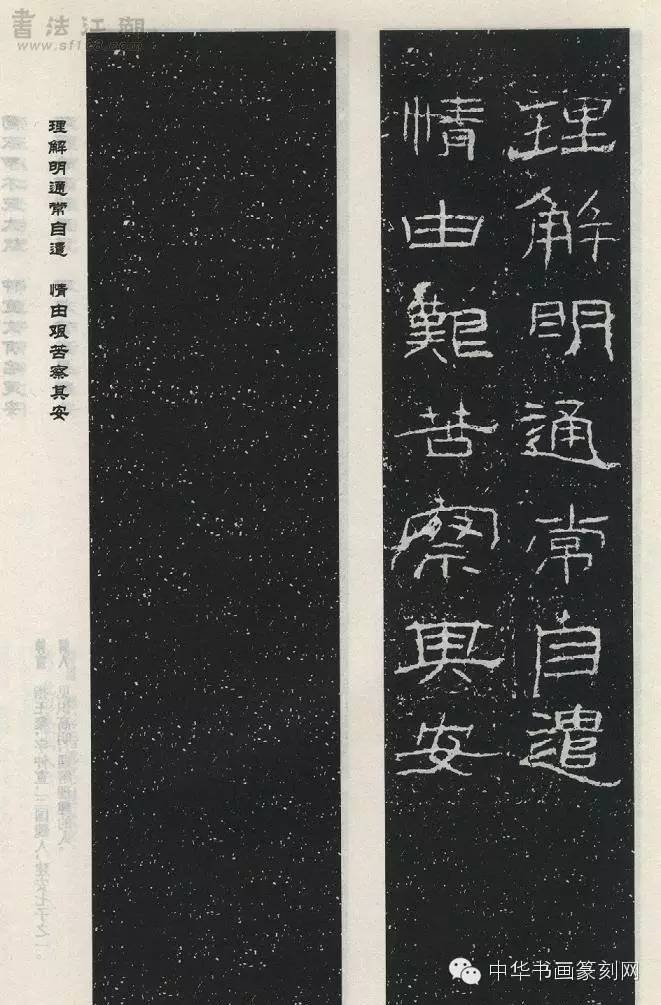 理解明通常自遣
情由艱苦察其安
理解明通常自遣 情由艰苦察其安
書法江湖
中华书画篆刻网